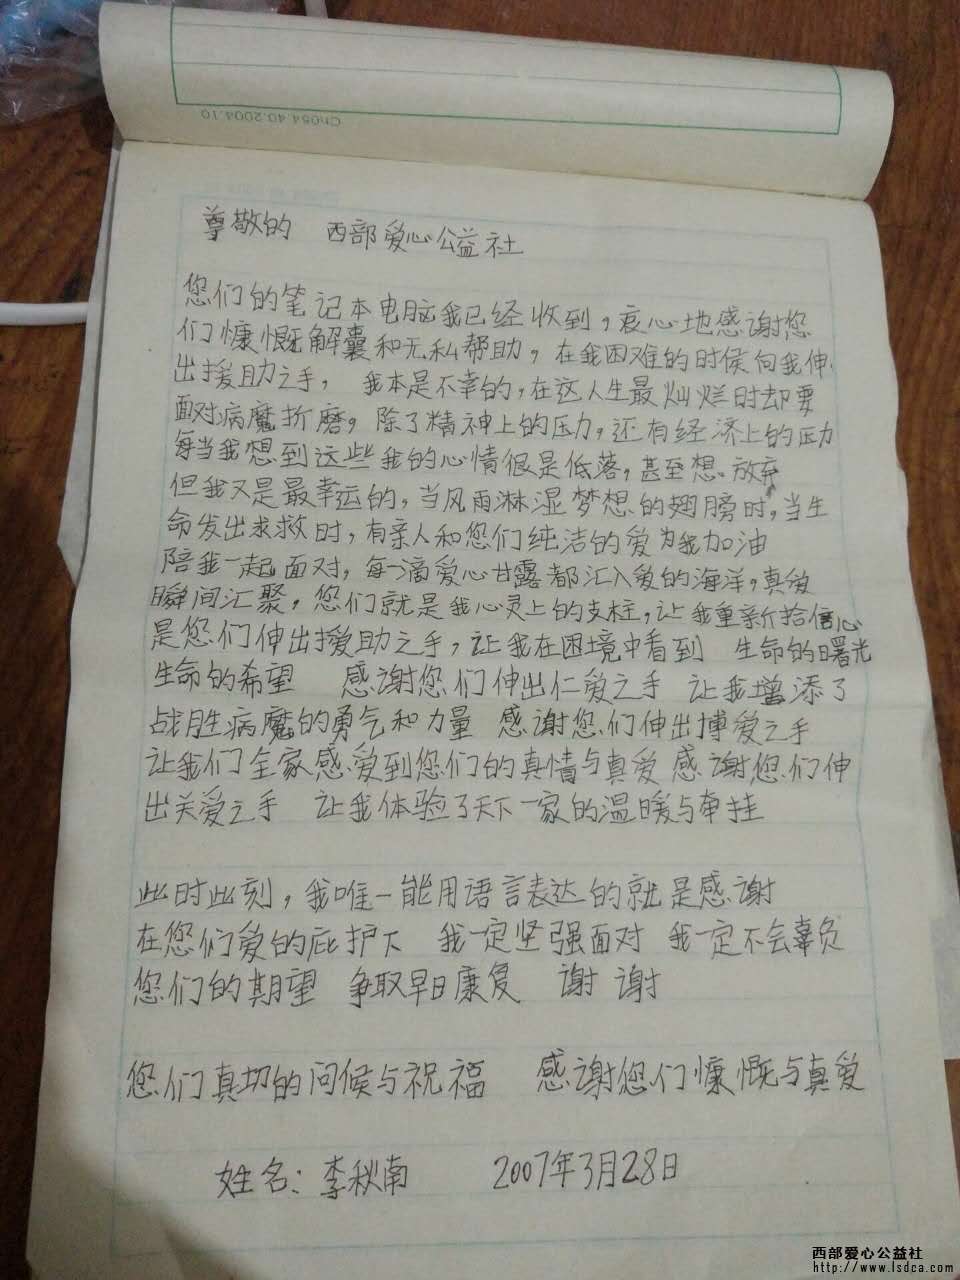 Ch054.40.2004.10
尊敬的 西部爱心公益社
您们的笔记本电脑我已经收到，衷心地感谢您
们慷慨解囊和无私帮助，在我困难的时候向我伸
出援助之手， 我本是不幸的，在这人生最灿烂时却要
面对病魔折磨，除了精神上的压力，还有经济上的压力
每当我想到这些我的心情很是低落，甚至想.放弃
但我又是最幸运的，当风雨淋湿梦想的翅膀时，当生
命发出求救时，有亲人和您们纯洁的爱为我加油
陪我一起面对，每一滴爱心甘露都汇入爱的海洋，真爱
瞬间汇聚，您们就是我心灵上的支柱，让我重新拾信心
是您们伸出援助之手，让我在困境中看到 生命的曙光
生命的希望 感谢您们伸出仁爱之手 让我增添了
战胜病魔的勇气和力量 感谢您们伸出博爱之手
让我们全家感爱到您们的真情与真爱 感谢您们伸
出关爱之手 让我体验了天下一家的温暖与牵挂
此时此刻，我唯一能用语言表达的就是感谢
在您们爱的庇护下 我一定坚强面对 我一定不会辜负
您们的期望 争取早日康复 谢谢
您们真切的问候与祝福 感谢您们慷慨与真爱
姓名：李秋南 2007年3月28日
西部爱心公益社
http://www.lsdca.com